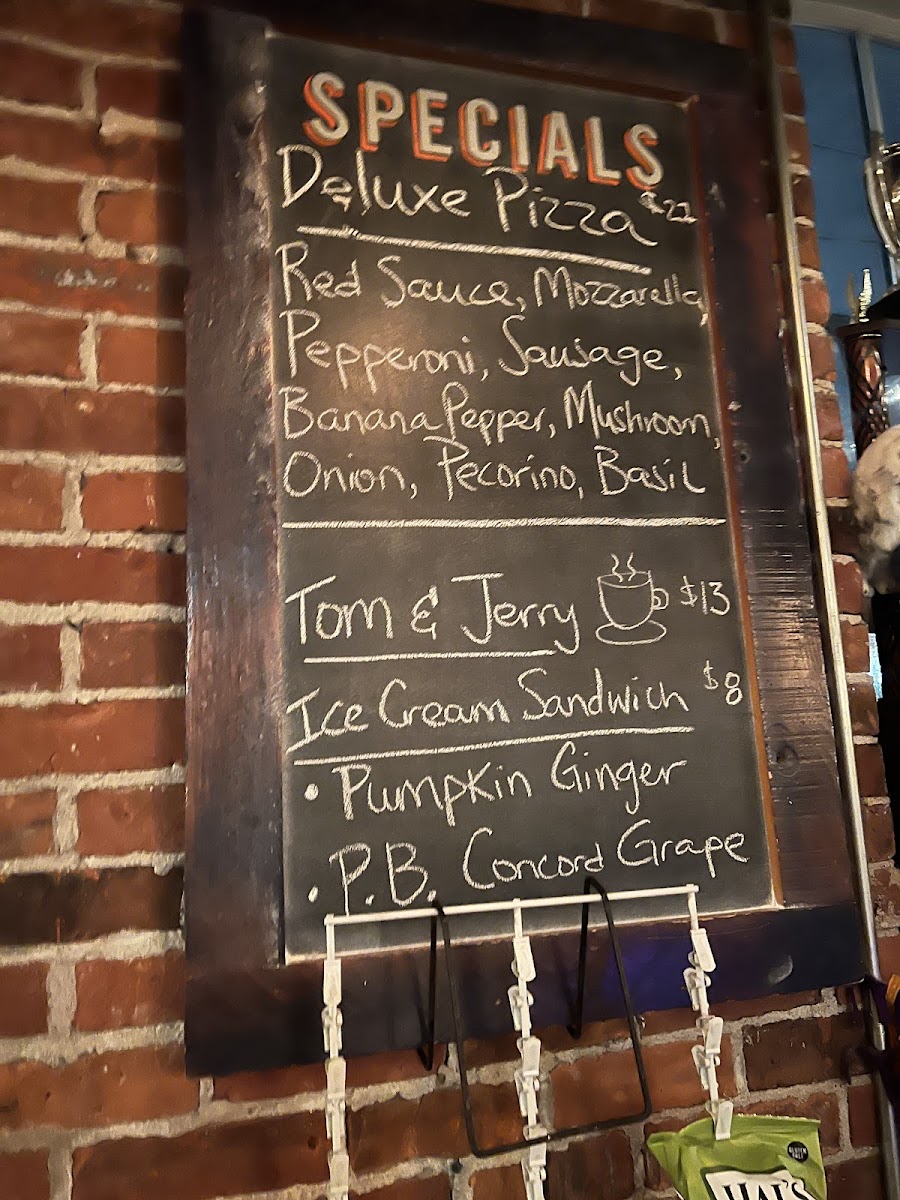 SPECIALS
Deluxe Pizza $22
Red Sauce, Mozzarella,
Pepperoni, Sausage,
Banana Pepper, Mushroom,
Onion, Pecorino, Basil
Tom & Jerry $13
Ice Cream Sandwich $8
• Pumpkin Ginger
• P.B. Concord Grape
GLUTEN
HAL'S